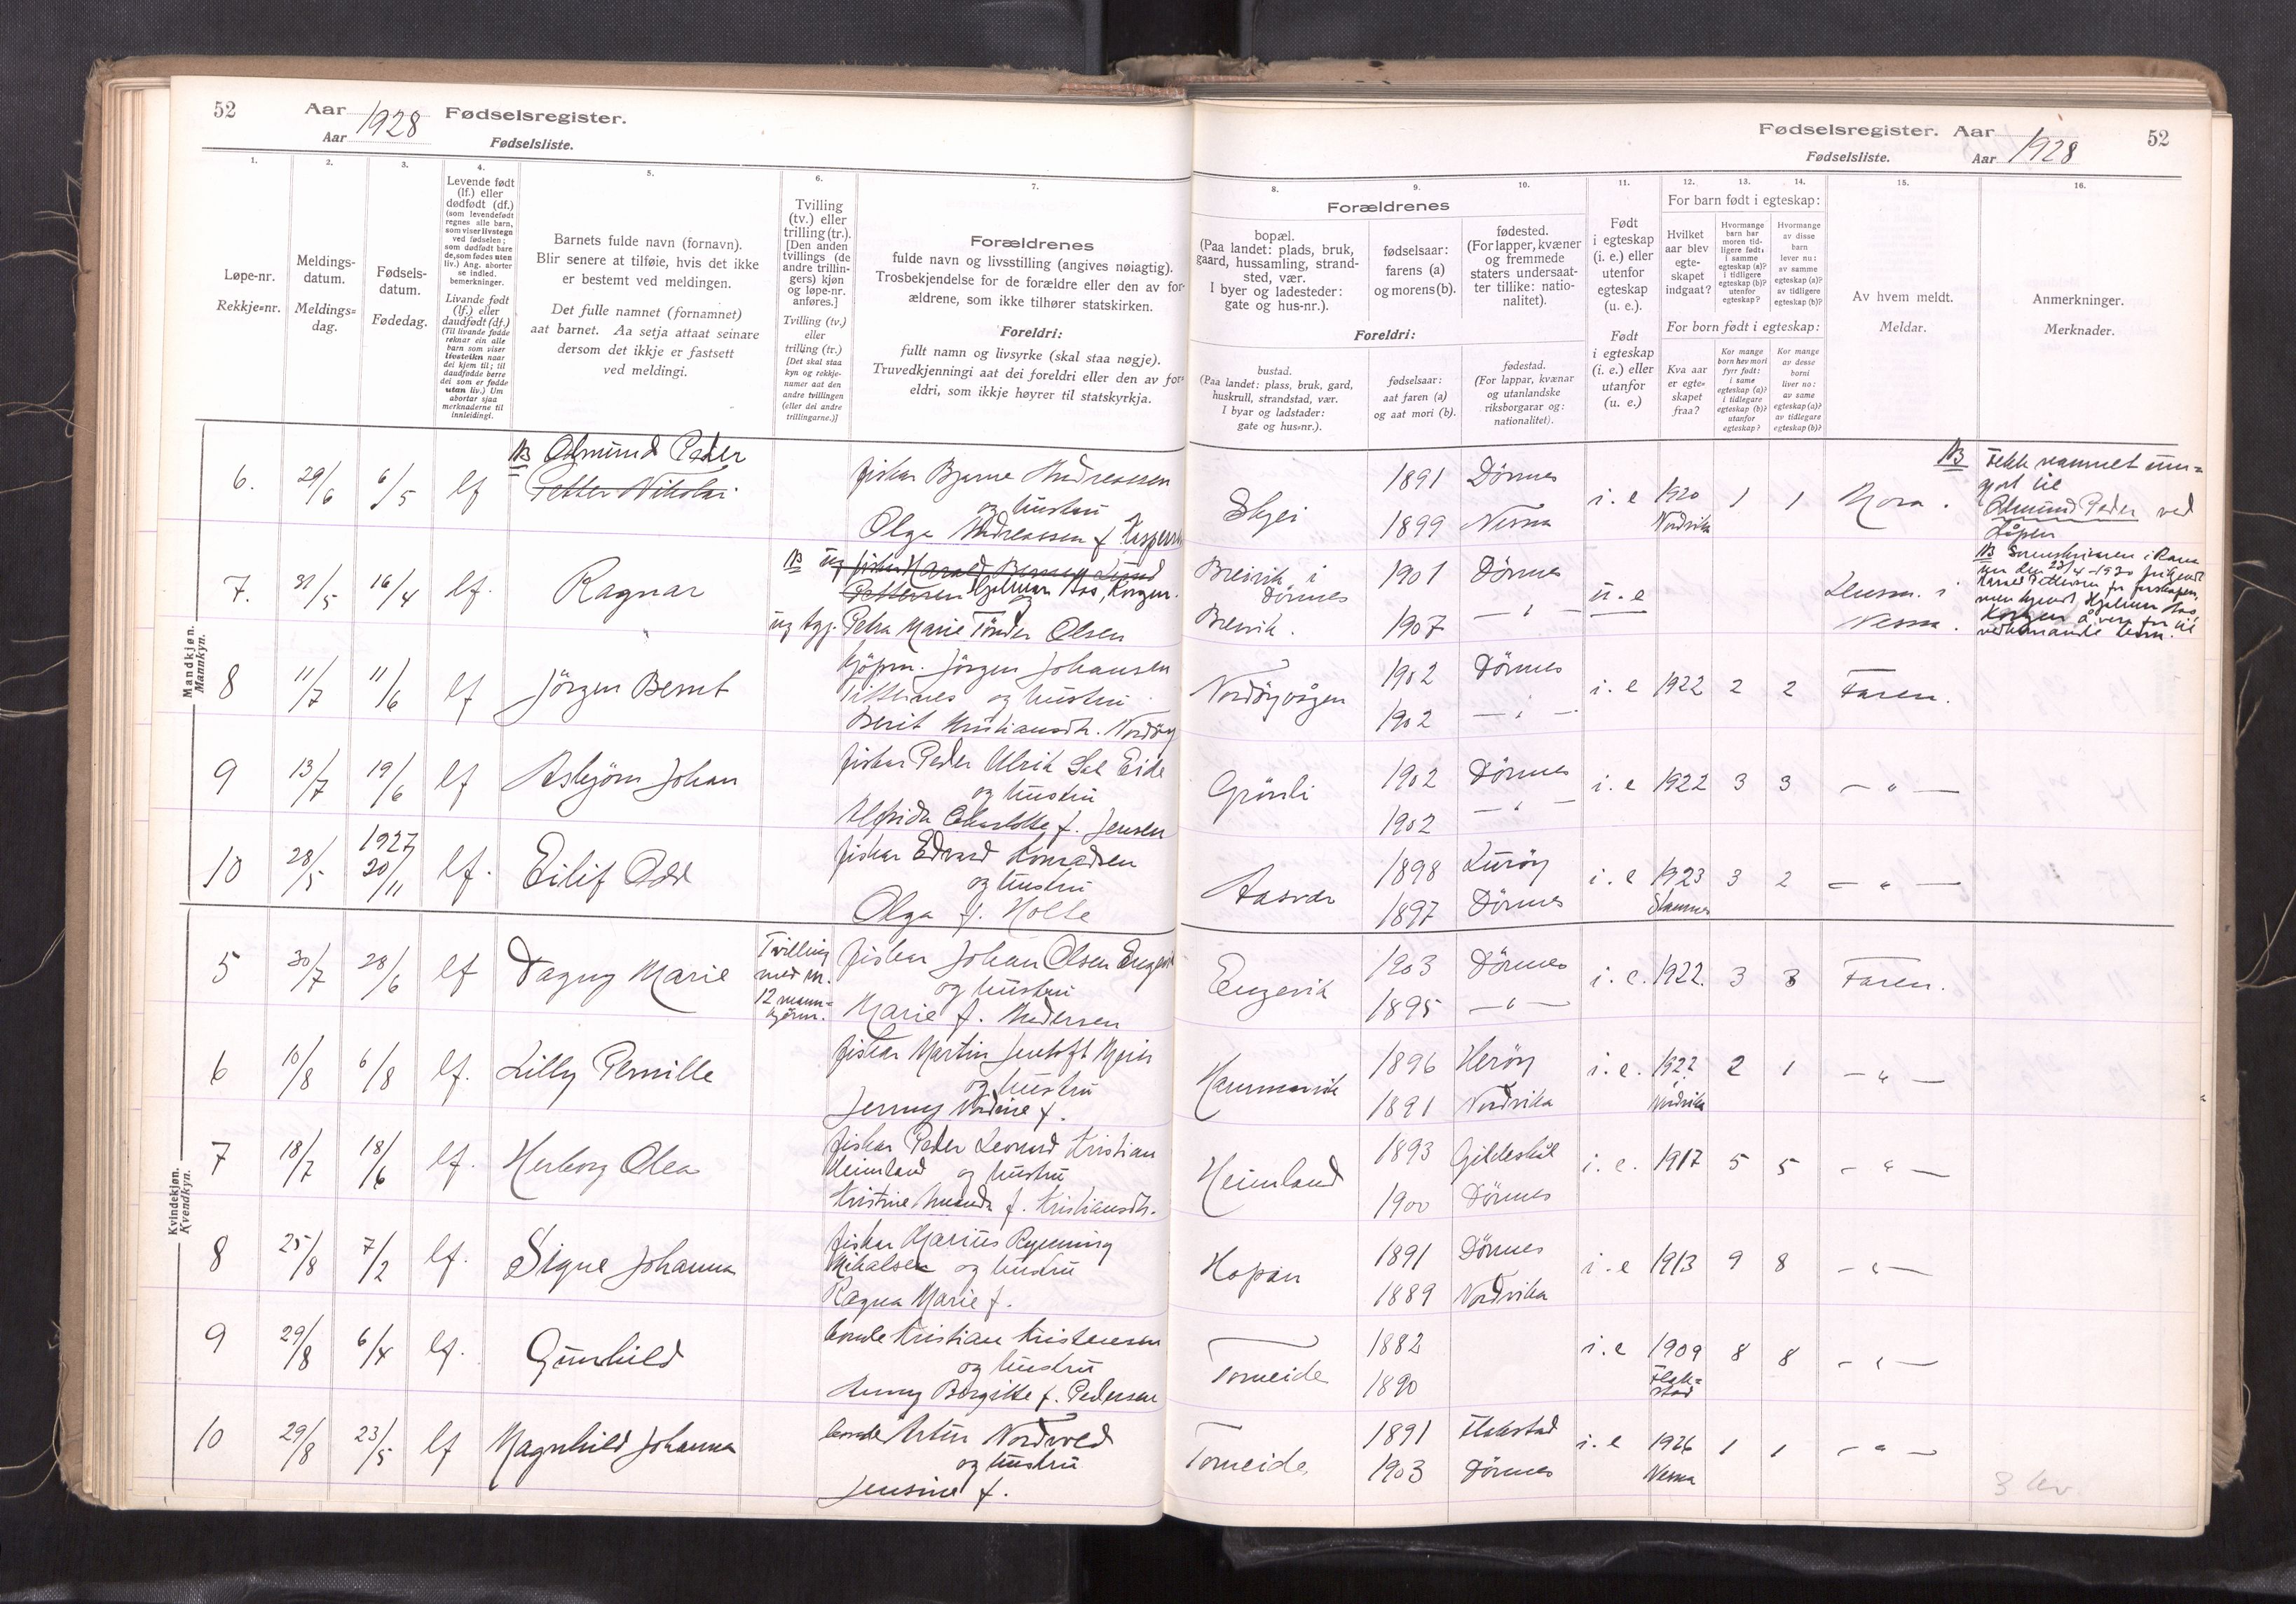 52 Aar 1928 Fødselsregister.
Aar Fødselsliste.
1.
Løpe-nr.
Rekkje=nr.
2.
Meldings-
datum.
Meldings=
dag.
3.
Fødsels-
datum.
Fødedag.
4.
Levende født
(lf.) eller
dødfødt (df.)
(som levendefødt
regnes alle barn,
som viser livstegn
ved fødselen;
som dødfødt bare
de, som fødes uten
liv.) Ang. aborter
se indled.
bemerkninger.
Livande født
(lf.) eller
daudfødt (df.)
(Til livande fødde
reknar ein alle
barn som viser
livsteikn naar
dei kjem til; til
daudfødde berre
dei som er fødde
utan liv.) Um
abortar sjaa
merknaderne til
innleidingi.
5.
Barnets fulde navn (fornavn).
Blir senere at tilføie, hvis det ikke
er bestemt ved meldingen.
Det fulle namnet (fornamnet)
aat barnet. Aa setja attaat seinare
dersom det ikkje er fastsett
ved meldingi.
6.
Tvilling
(tv.) eller
trilling (tr.).
[Den anden
tvillings (de
andre trillin-
gers) kjøn
og løpe-nr.
anføres.]
Tvilling (tv.)
eller
trilling (tr.)
[Det skal staa
kyn og rekkje-
numer aat den
andre tvillingen
(eller dei andre
trillingarne.)]
7.
Forældrenes
fulde navn og livsstilling (angives nøiagtig).
Trosbekjendelse for de forældre eller den av for-
ældrene, som ikke tilhører statskirken.
Foreldri:
fullt namn og livsyrke (skal staa nøgje).
Truvedkjenningi aat dei foreldri eller den av for=
eldri, som ikkje høyrer til statskyrkja.
Fødselsregister. Aar 1928 52
Fødselsliste. Aar
8.
Forældrenes
bopæl.
(Paa landet: plads, bruk,
gaard, hussamling, strand-
sted, vær.
I byer og ladesteder:
gate og hus-nr.).
Foreldri:
bustad.
(Paa landet: plass, bruk, gard,
huskrull, strandstad, vær.
I byar og ladstader:
gate og hus=nr.).
9.
fødselsaar:
farens (a)
og morens (b).
fødselsaar:
aat faren (a)
og aat mori (b).
10.
fødested.
(For lapper, kvæner
og fremmede
staters undersaat-
ter tillike: natio-
nalitet).
fødestad.
(For lappar, kvænar
og utanlandske
riksborgarar og:
nationalitet).
11.
Født
i egteskap
(i. e.) eller
utenfor
egteskap
(u. e.).
Født
i egteskap
(i. e.) eller
utanfor
(u. e.)
12. 13. 14.
For barn født i egteskap:
Hvilket
aar blev
egte-
skapet
indgaat?
Hvormange
barn har
moren tid-
ligere født:
i samme
egteskap (a)?
i tidligere
egteskap (b)?
utenfor
egteskap?
Hvormange
av disse
barn
lever nu:
av samme
egteskap (a)?
av tidligere
egteskap (b)?
For born født i egteskap:
Kva aar
er egte=
skapet
fraa?
Kor mange
born hev mori
fyrr født:
i same
egteskap (a)?
i tidlegare
egteskap (b)?
utanfor
egteskap?
Kor mange
av desse
borni
liver no:
av same
egteskap (a)?
av tidlegare
egteskap (b)?
15.
Av hvem meldt.
Meldar.
16.
Anmerkninger.
Merknader.
Mandkjøn.
Mannkyn.
NB Odmund Peder
6. 29/6 6/5 lf Petter Nikolai fiskar Bjarne Andreassen
og hustru
Olga Andreassen f. Kaspersen
Skjei 1891 Dönnes i. e 1920 1 1 Mora.
1899 Nesna Nordvika
NB Fekk namnet um=
gjort til
Odmund Peder ved
dåpen
7. 31/5 16/4 lf. Ragnar NB ug fiskar Harald Berner Lund
Pettersen Hjalmar Aas, Korgen.
og
ug tyj. Petra Marie Tönder Olsen
Breivik i 1901 Dönnes u. e Lensm. i
Dönnes
Breivik. 1907 — " — Nesna.
NB Sorenskrivaren i Rana
den 23/4-1930 frikjendt
Harald Pettersen for farskapen,
men kjendt Hjalmar Aas
Korgen å vera far til
vedkomande barn.
8 11/7 11/6 lf Jörgen Bernt kjöpm. Jörgen Johansen
Titternes og hustru
Berit Kristiansdtr. Nordöy
Nordöyvågen 1902 Dönnes i. e 1922 2 2 Faren.
1902 — " —
9 13/7 19/6 lf Asbjörn Johan fiskar Peder Ulrik Sal Eide
og hustru
Alfrida Charlotte f. Jensen
Grönli 1902 Dönnes i. e 1922 3 3 — " —
1902 — " —
10 28/5 1927 20/11 lf. Eilif Odd fiskar Edvard Konradsen
og hustru
Olga f. Holte
Aasvær 1898 Luröy i. e 1923 3 2 — " —
1897 Dönnes Stamnes
Kvindekjøn.
Kvendkyn.
5 30/7 28/6 lf Dagny Marie Tvilling
med nr.
12 mann=
kjönn.
fiskar Johan Olsen Engevik
og hustru
Marie f. Andersen
Engevik 1903 Dönnes i. e. 1922. 3 3 Faren.
1895 — " —
6 10/8 6/8 lf. Lilly Pernille fiskar Martin Jentoft Meier
og hustru
Jenny Nordine f.
Hammarvik 1896 Heröy i. e. 1922 2 1 — " —
1891 Nordvika Nordvika
7 18/7 18/6 lf. Herborg Olea fiskar Peder Leonard Kristian
Heimland og hustru
Kristine Amanda f. Kristiansdtr.
Heimland 1893 Gildeskål i. e. 1917 5 5 — " —
1900 Dönnes
8 25/8 7/2 lf. Signe Johanna fiskar Marius Rynning
Mikalsen og hustru
Ragna Marie f.
Hopan 1891 Dönnes i. e 1913 9 8 — " —
1889 Nordvika
9 29/8 6/4 lf. Gunhild bonde Kristian Kristensen
og hustru
Anny Borgitte f. Pedersen
Torneide 1882 i. e 1909 8 8 — " —
1890 Flak=
stad
10 29/8 23/5 lf Magnhild Johanna bonde Artur Nordvold
og hustru
Jensine f.
Torneide 1891 Flakstad i. e 1926 1 1 — " —
1903 Dönnes Nesna
3 lev.